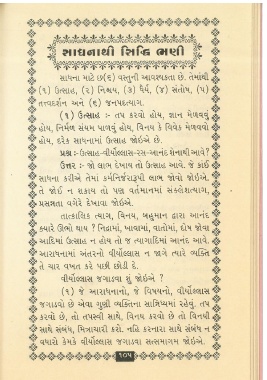 સાધનાથી સિદ્ધિ ભણી
સાધના માટે છ(૬) વસ્તુની આવશ્યકતા છે. તેમાંથી
(૧) ઉત્સાહ, (૨) નિશ્ચય, (૩) ધૈર્ય, (૪) સંતોષ, (૫)
તત્ત્વદર્શન અને (૬) જનપદત્યાગ.
(૧) ઉત્સાહ :- તપ કરવો હોય, જ્ઞાન મેળવવું
હોય, નિર્મળ સંયમ પાળવું હોય, વિનય કે વિવેક મેળવવો
હોય, દરેક સાધનામાં ઉત્સાહ જોઈએ છે.
પ્રશ્ન :- ઉત્સાહ-વીર્યોલ્લાસ-રસ-આનંદ શેનાથી આવે?
ઉત્તર :- જો લાભ દેખાય તો ઉત્સાહ આવે. જે કાંઈ
સાધના કરીએ તેમાં કર્મનિર્જરારૂપી લાભ જોવો જોઈએ.
તે જોઈ ન શકાય તો પણ વર્તમાનમાં સંક્લેશત્યાગ,
પ્રસન્નતા વગેરે દેખાવા જોઈએ.
તાત્કાલિક ત્યાગ, વિનય, બહુમાન દ્વારા આનંદ
ક્યારે ઊભો થાય ? નિદ્રામાં, ખાવામાં, વાતોમાં, દોષ જોવા
આદિમાં ઉત્સાહ ન હોય તો જ ત્યાગાદિમાં આનંદ આવે.
આરાધનામાં અંતરનો વીર્યોલ્લાસ ન જાગે ત્યારે વ્યક્તિ
તે ચાર વખત કરે પાછી છોડી દે.
વીર્યોલ્લાસ જગાડવા શું જોઈએ ?
(૧) જે આરાધનાનો, જે વિષયનો, વીર્યોલ્લાસ
જગાડવો છે એવા ગુણી વ્યક્તિના સાન્નિધ્યમાં રહેવું. તપ
કરવો છે, તો તપસ્વી સાથે, વિનય કરવો છે તો વિનયી
સાથે સંબંધ, મિત્રાચારી કરો. નહિ કરનારા સાથે સંબંધ ન
વધારો કેમકે વીર્યોલ્લાસ જગાડવા સત્સમાગમ જોઈએ.
૧૦૫